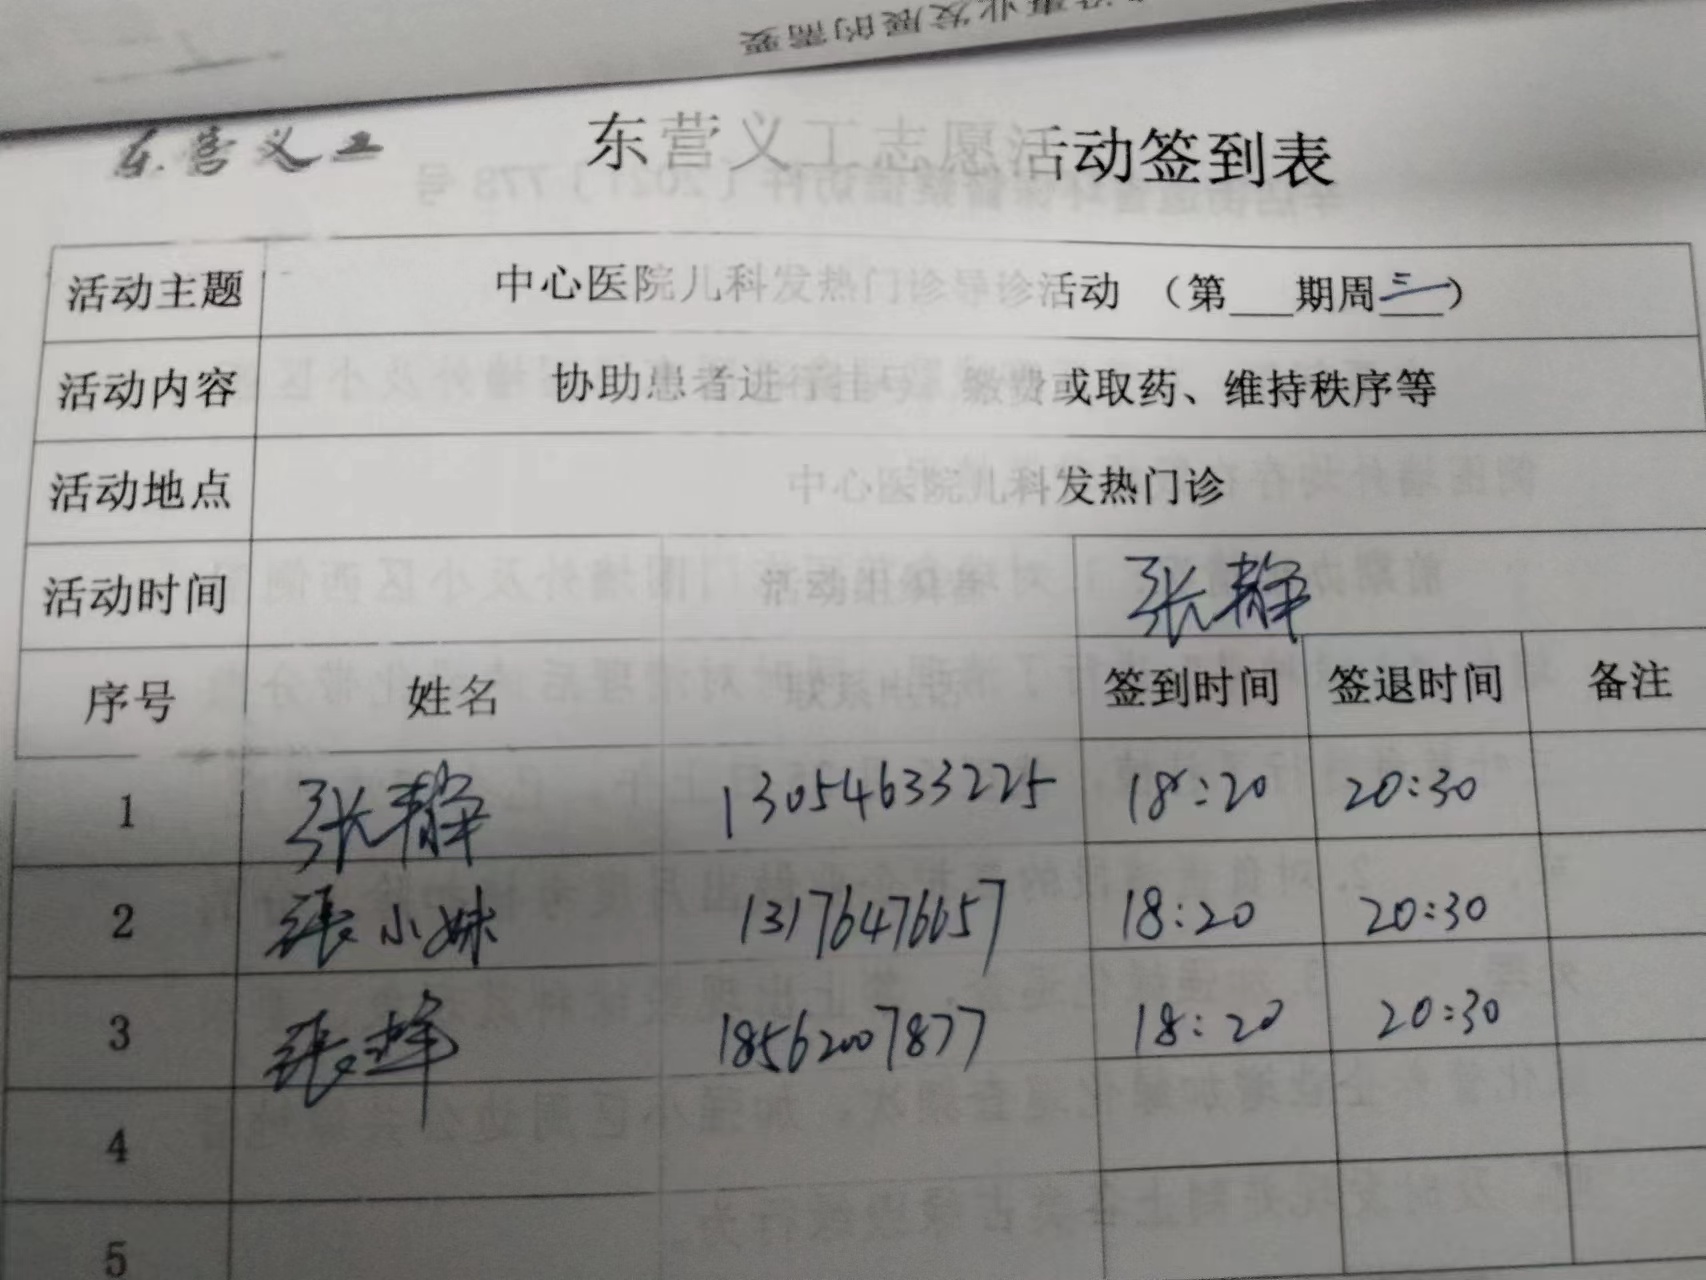 业发展的需要
东营义工
东营义工志愿活动签到表
活动主题 中心医院儿科发热门诊导诊活动 （第___期周三）
活动内容 协助患者进行挂号、缴费或取药、维持秩序等
活动地点 中心医院儿科发热门诊
活动时间 活动组织者 张静
序号 姓名 联系电话 签到时间 签退时间 备注
1 张静 13054633225 18:20 20:30
2 张小妹 13176476657 18:20 20:30
3 张峰 18562007877 18:20 20:30
4
5